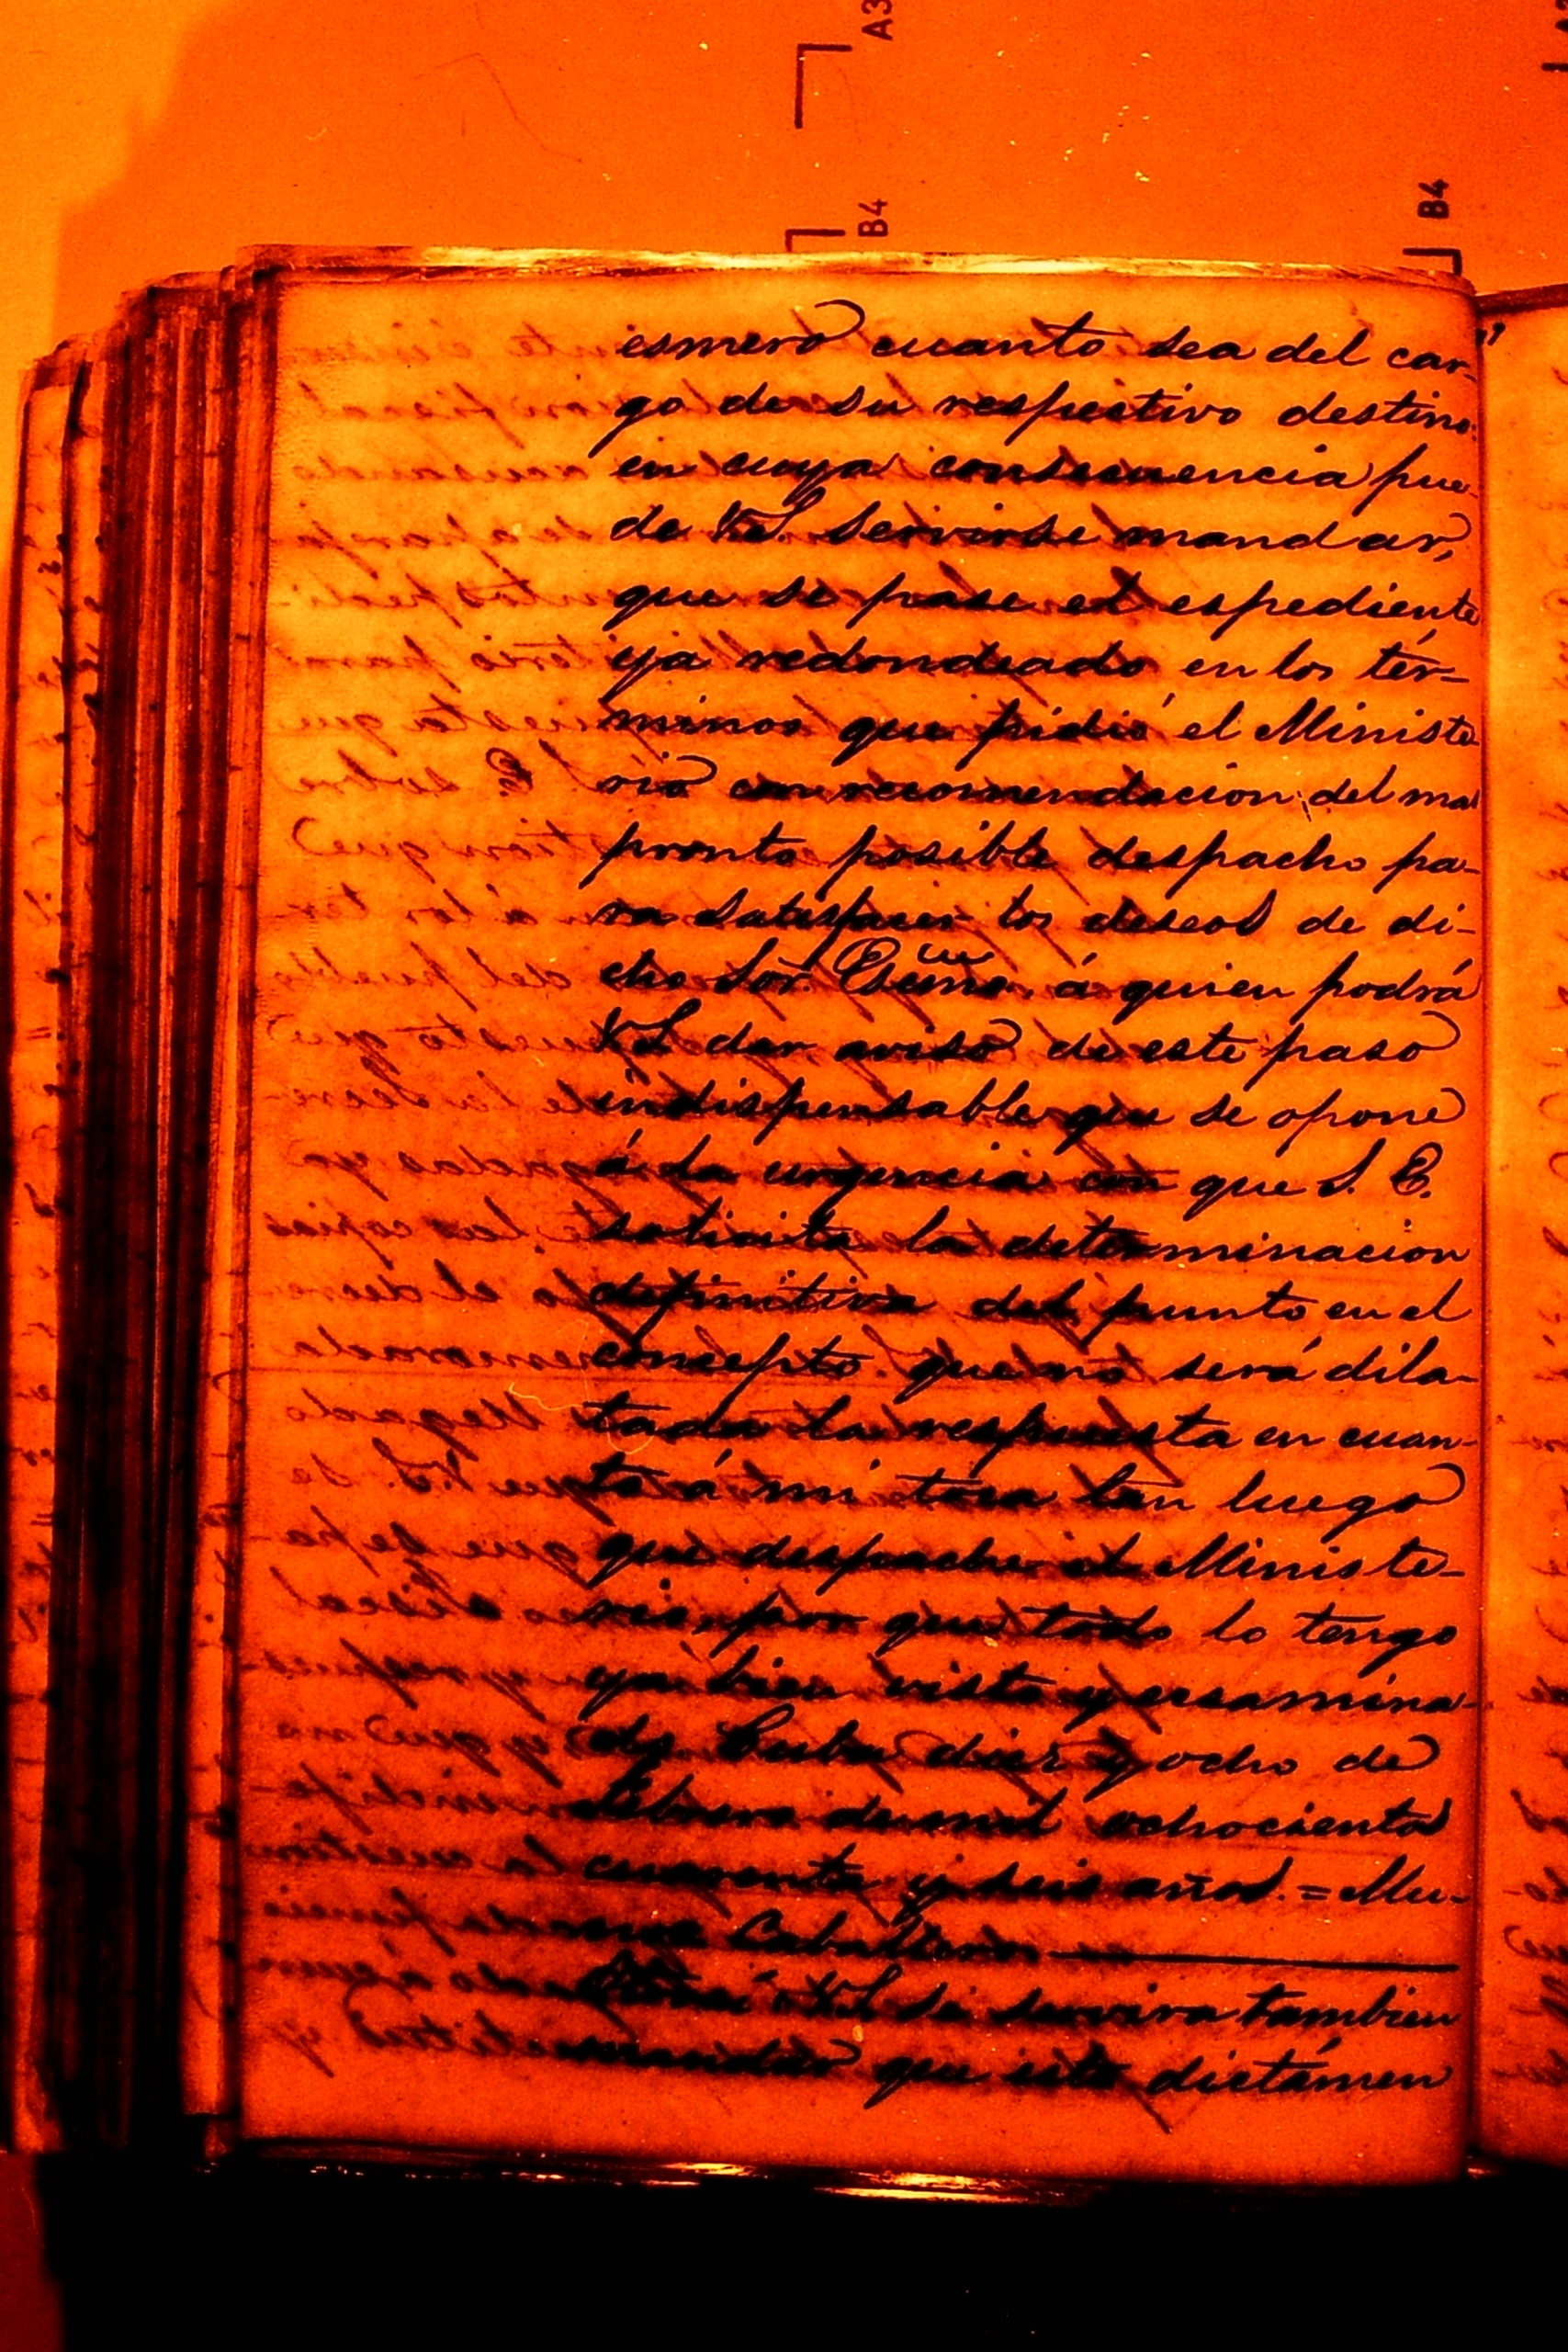 A3
B4
B4
esmero cuanto sea del car-
go de su respectivo destino:
en cuya consecuencia pue-
de V.S. servirse mandar,
que se pase el espediente
ya redondeado en los tér-
minos que pidió el Ministe
rio con recomendacion del mas
pronto posible despacho pa-
ra satisfacer los deseos de di-
cho Sor. Escmo. á quien podrá
V.S. dar aviso de este paso
indispensable que se opone
á la urgencia con que S. E.
solicita la determinacion
definitiva del punto en el
concepto que no será dila-
tada la respuesta en cuan-
to á mi toca tan luego
que despache el Ministe-
rio, por que todo lo tengo
ya bien visto y ecsamina-
do Cuba diez y ocho de
Febrero de mil ochocientos
cuarenta y seis años. = Mu-
Caballero
V.S. se servira tambien
mandar que este dictámen